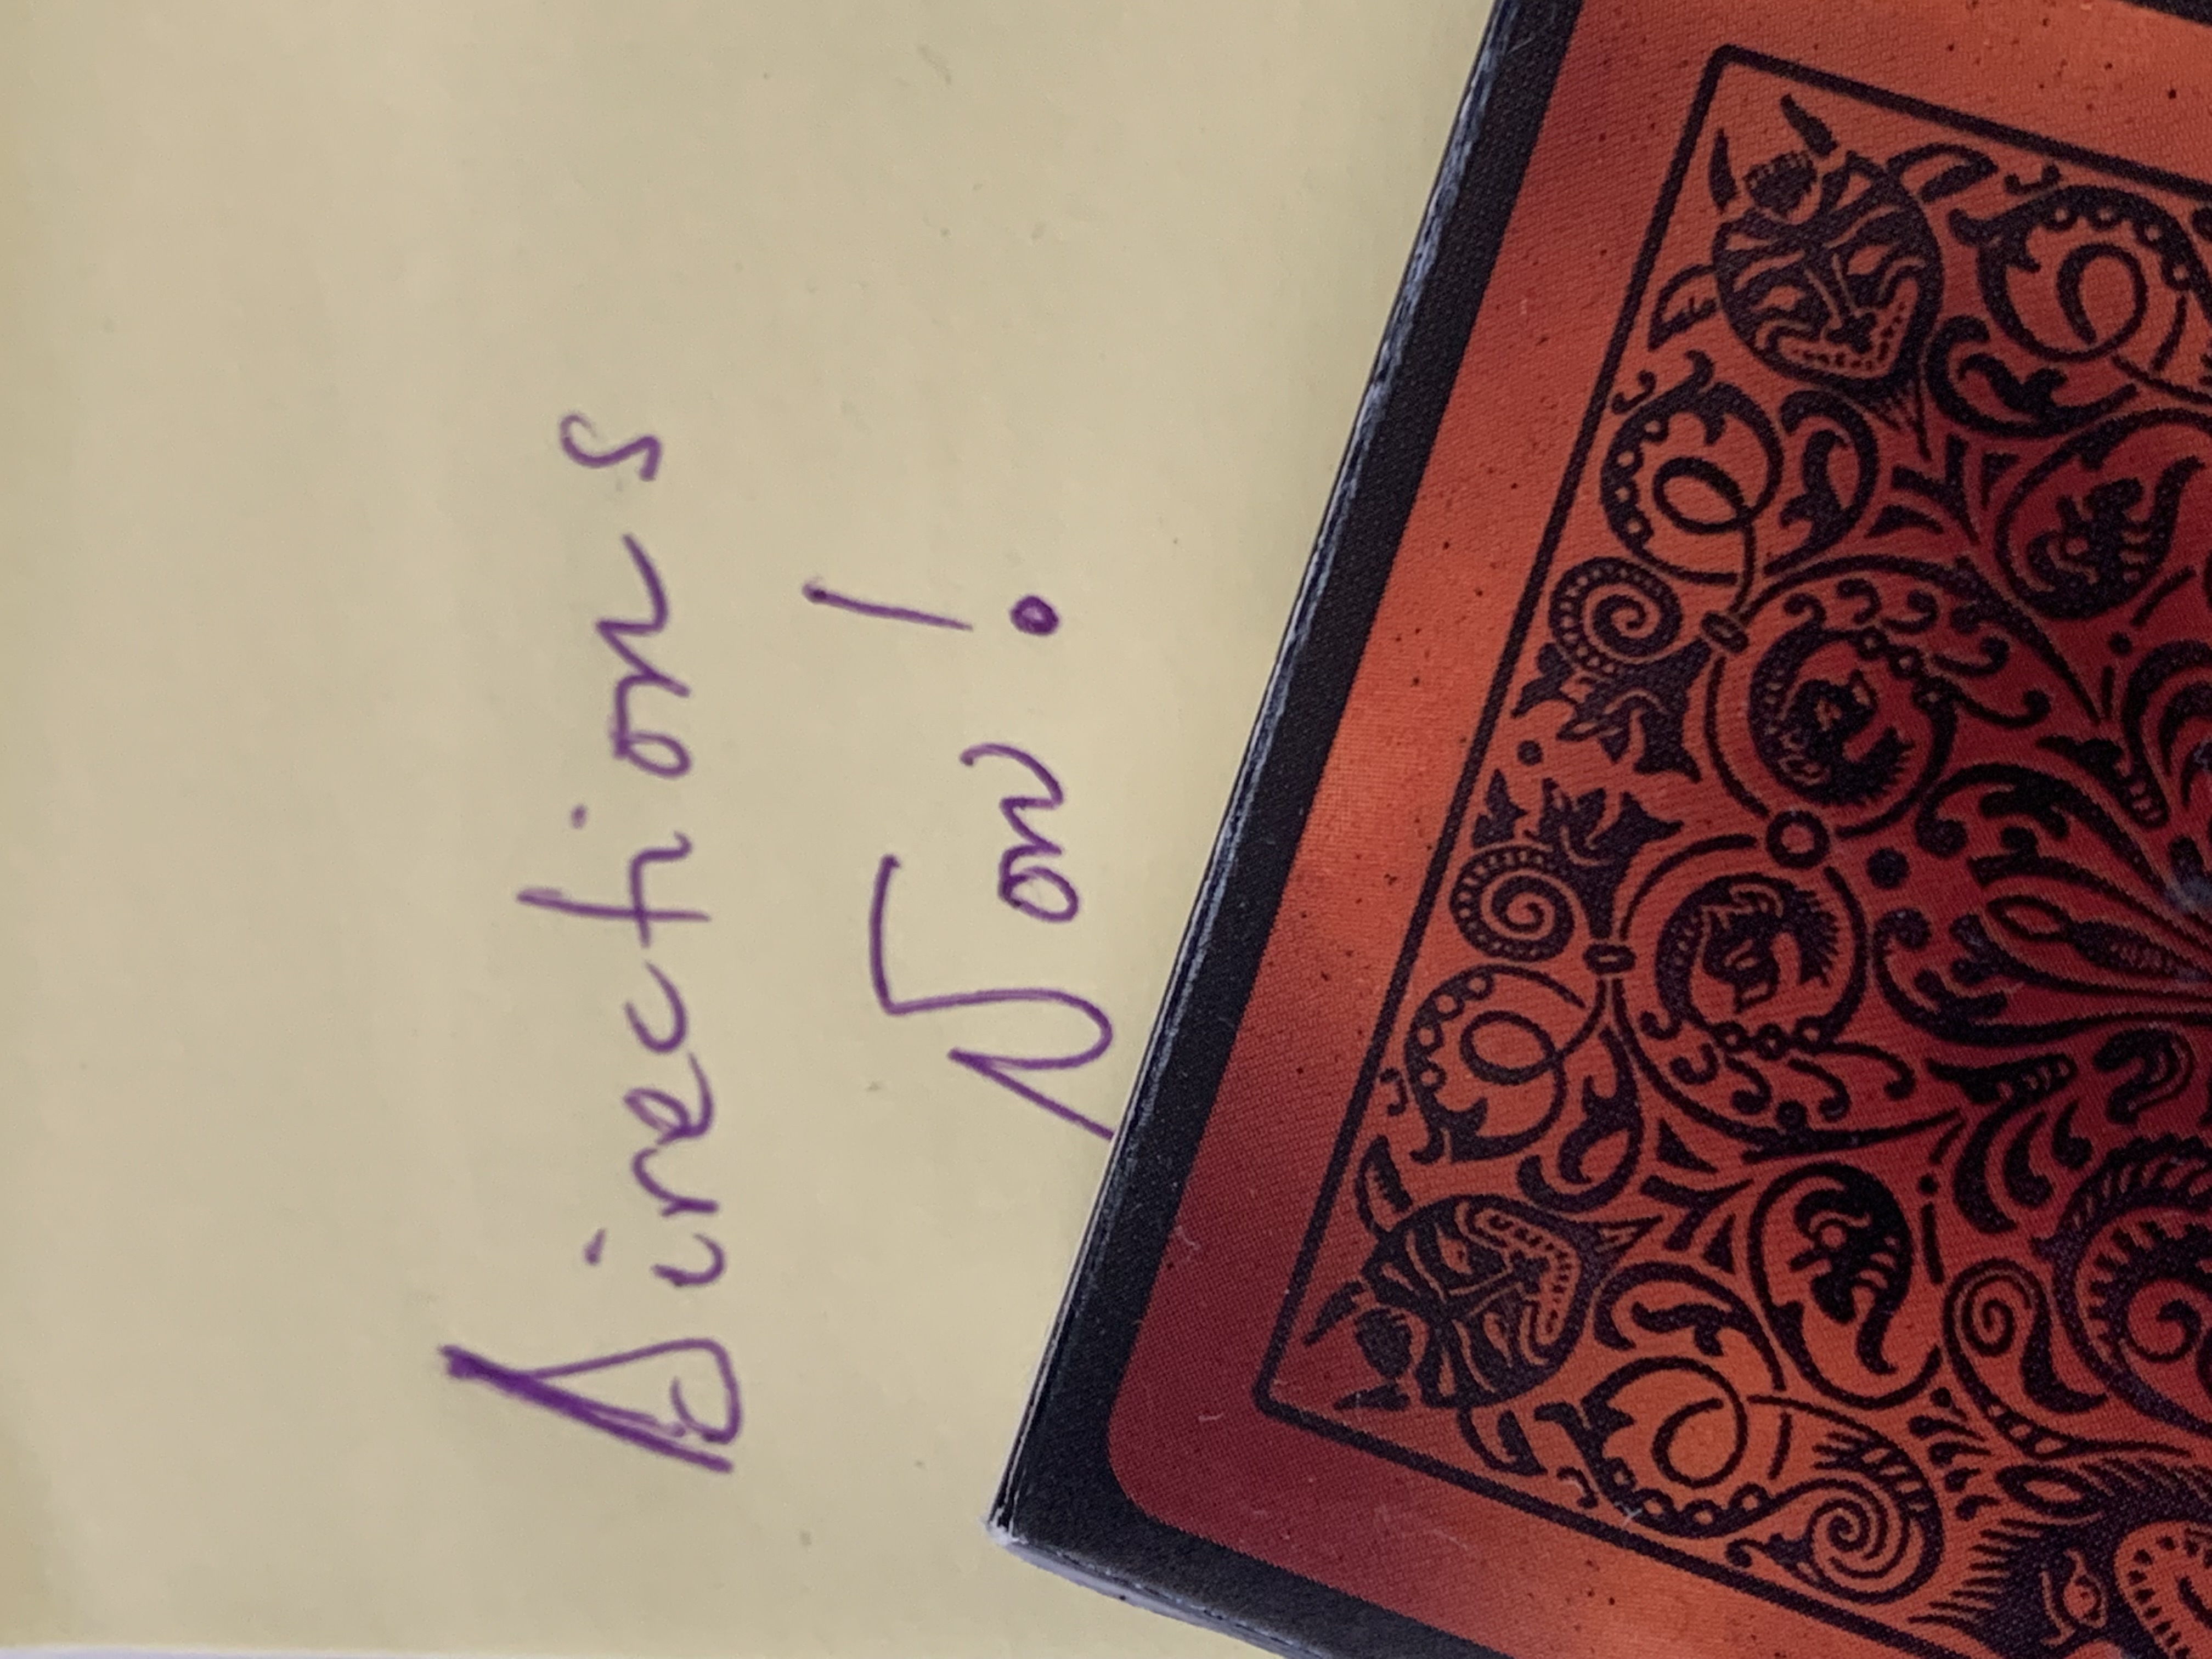 Directions
Now!